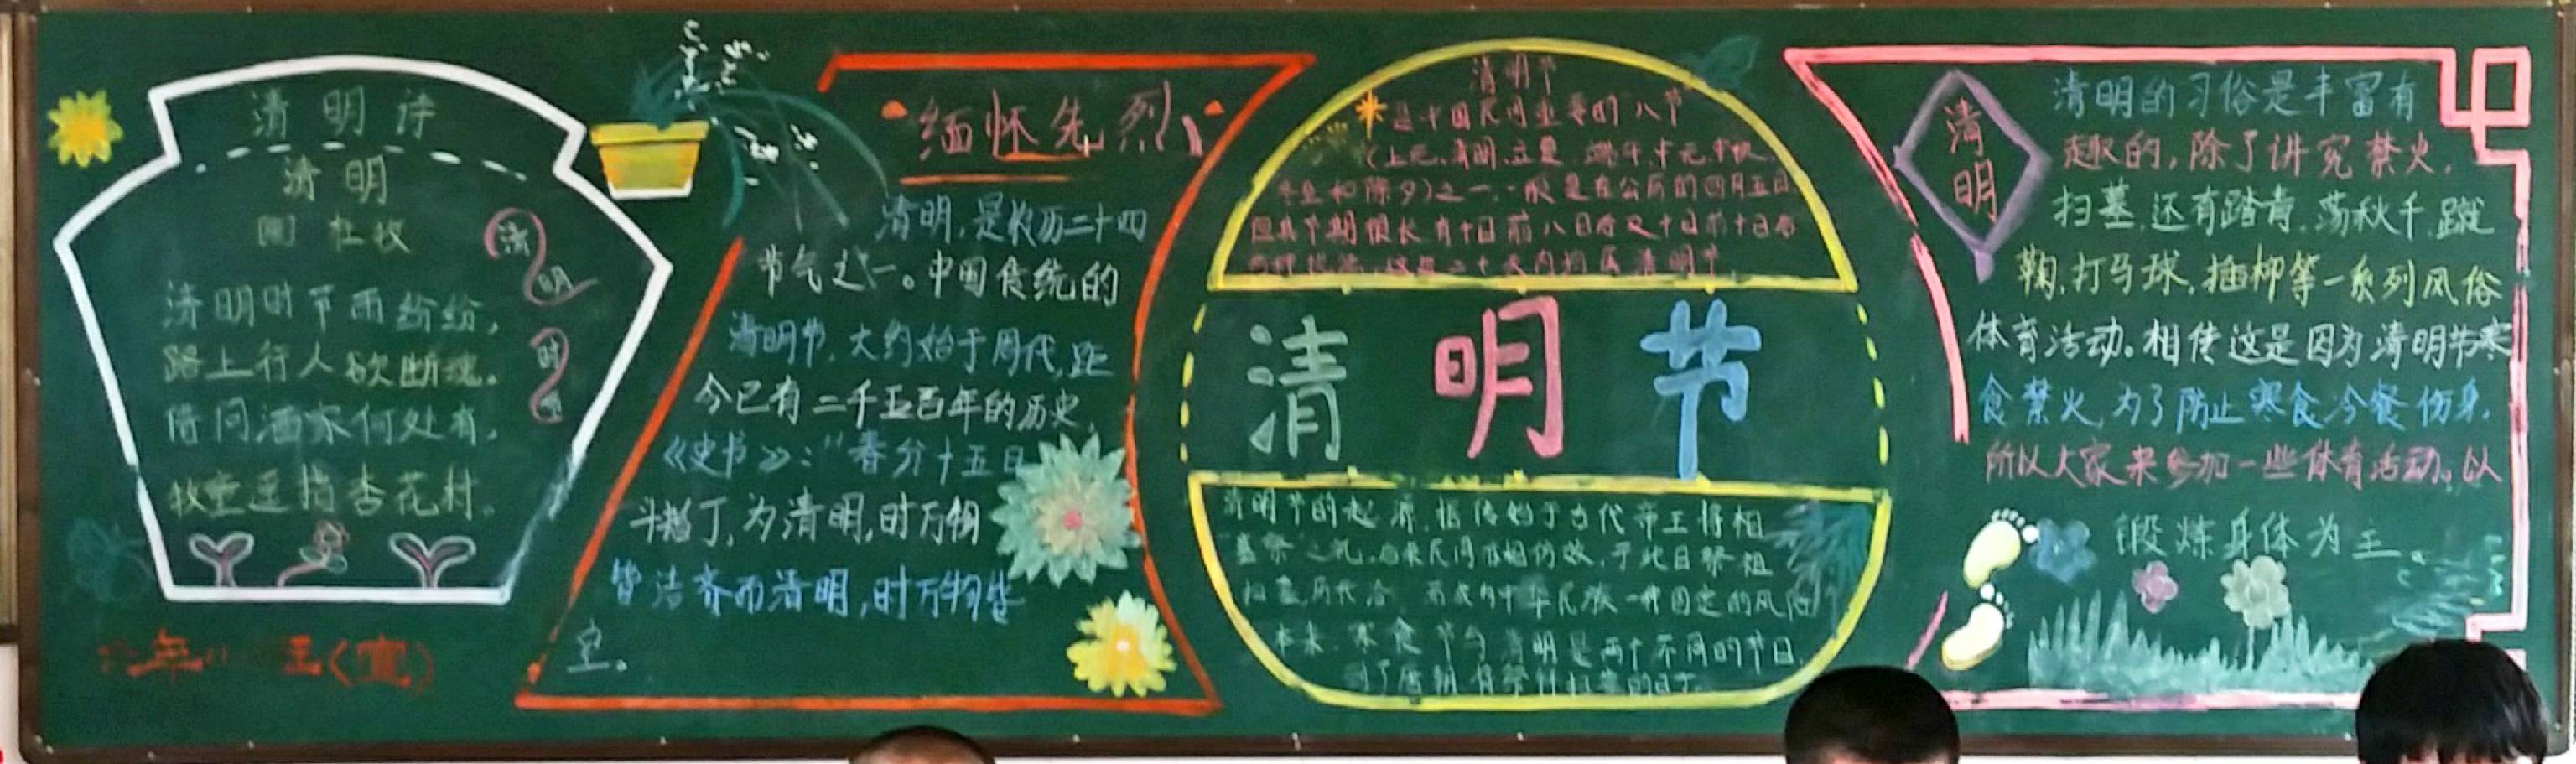 清明诗
清明
杜牧
清明时节雨纷纷，
路上行人欲断魂。
借问酒家何处有，
牧童遥指杏花村。
清明时
缅怀先烈
清明，是农历二十四
节气之一。中国传统的
清明节，大约始于周代，距
今已有二千五百年的历史，
《史书》：“春分十五日
斗指丁，为清明，时万物
皆洁齐而清明，时万物皆
清明节
是中国民间重要的八节
（上元、清明、立夏、端午、中元、中秋、
冬至和除夕）之一。一般是在公历的四月五日
但其节期很长有十日前八日后及十日前十日后
二十天内均属清明节
清明节
清明节的起源，相传始于古代帝王将相
墓祭之礼，后来民间亦相仿效，于此日祭祖
扫墓，历代沿 而成为中华民族一种固定的风俗
本来，寒食节与清明是两个不同的节日，
到了唐朝，祭 扫墓的日子
清明
清明的习俗是丰富有
趣的，除了讲究禁火，
扫墓，还有踏青，荡秋千，蹴
鞠，打马球，插柳等一系列风俗
体育活动。相传这是因为清明节寒
食禁火，为了防止寒食冷餐伤身，
所以大家来参加一些体育活动。以
锻炼身体为主。
年 班（宣）